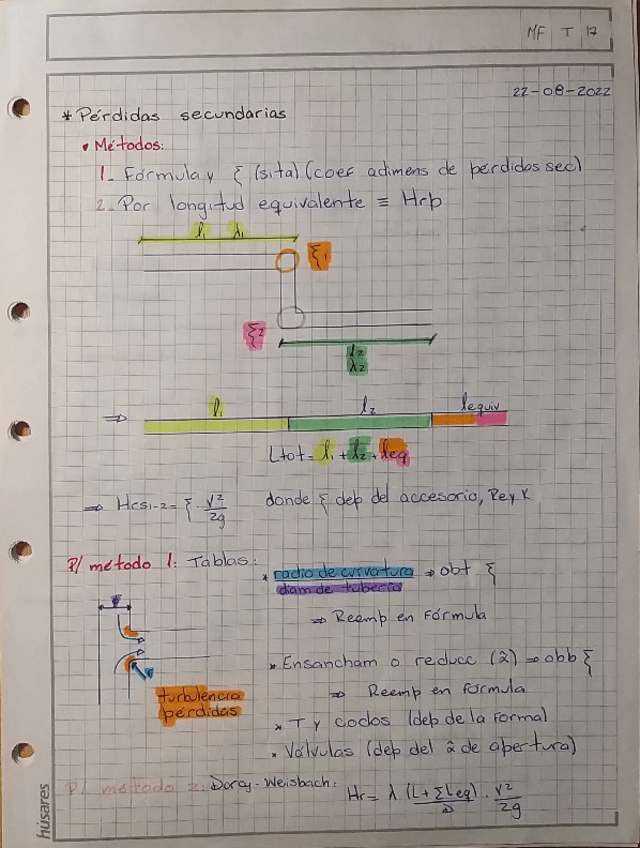 MF T 17
22-08-2022
* Pérdidas secundarias
• Métodos:
1- Fórmula y ξ (sita) (coef adimens de pérdidas sec)
2- Por longitud equivalente ≡ Hrp
l₁ λ₁
ξ₁
ξ₂
l₂
λ₂
⇒ l₁ l₂ lequiv
Ltot = l₁ + l₂ + leq
⇒ Hrs₁₋₂ = ξ · V²/2g donde ξ dep del accesorio, Re y K
P/ método 1: Tablas:
* radio de curvatura / diam de tubería → obt ξ
⇒ Reemp en fórmula
turbulencia
pérdidas
* Ensancham o reducc (â) ⇒ obb ξ
⇒ Reemp en fórmula
* T y codos (dep de la forma)
* Válvulas (dep del â de apertura)
P/ método 2: Darcy-Weisbach: Hr = λ (L+ΣLeq)/D · V²/2g
húsares